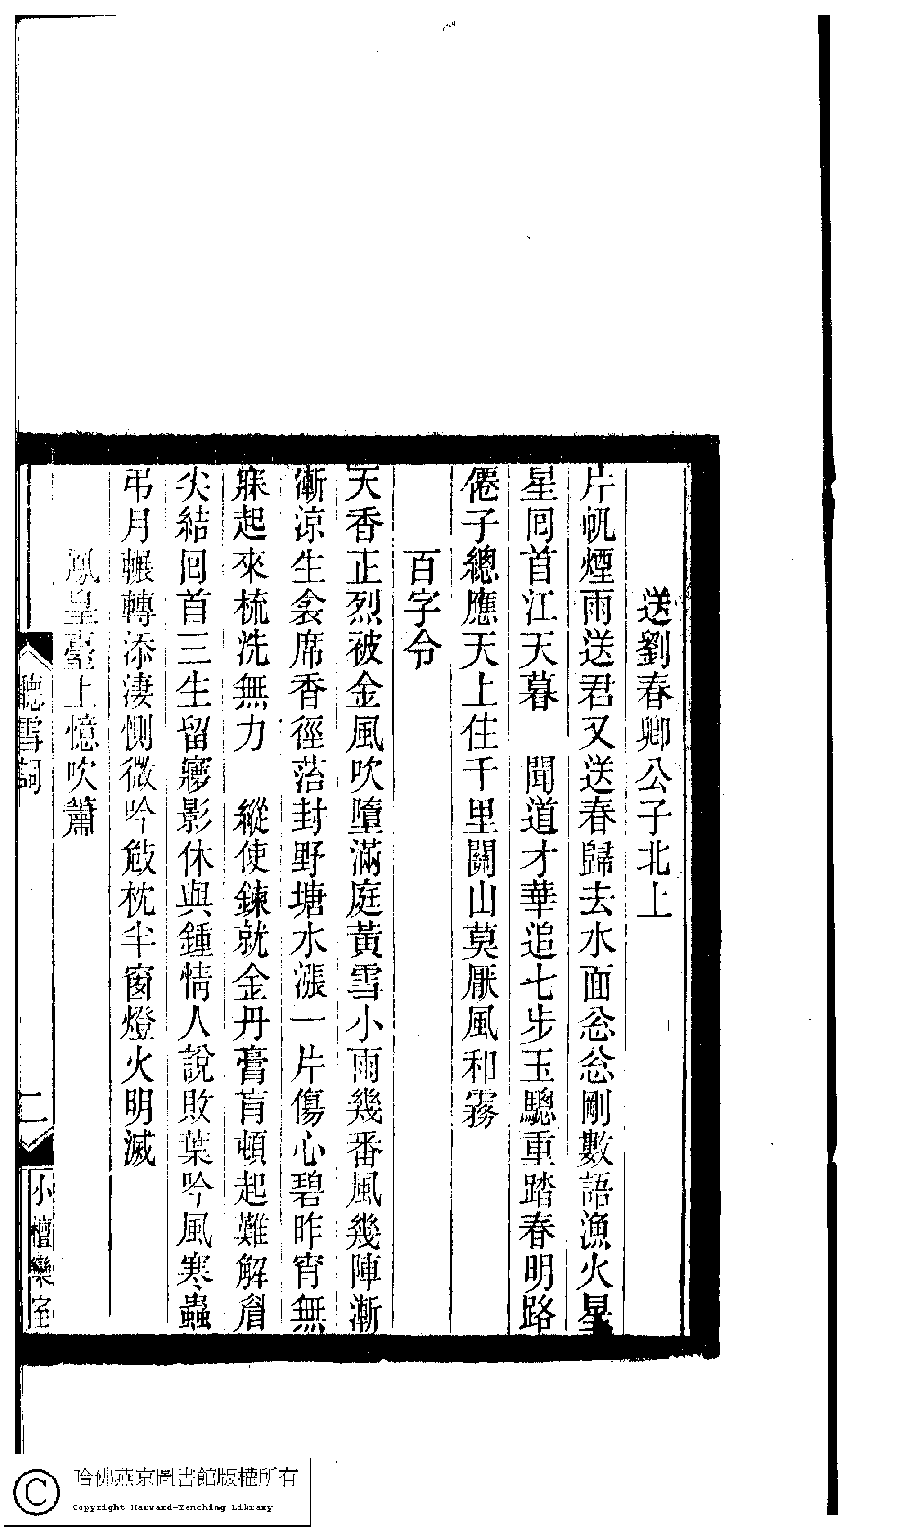 送劉春卿公子北上
片帆煙雨送君又送春歸去水面怱怱剛數語漁火星
星囘首江天暮　聞道才華追七步玉驄重踏春明路
僊子總應天上住千里關山莫厭風和霧
百字令
天香正烈被金風吹墮滿庭黃雪小雨幾番風幾陣漸
漸涼生衾席香徑萡封野塘水漲一片傷心碧昨宵無
寐起來梳洗無力　縱使鍊就金丹膏肓頓起難解眉
尖結囘首三生留㝱影休與鍾情人說敗葉吟風寒蟲
弔月輾轉添淒惻微吟敧枕半窗燈火明滅
鳳皇臺上憶吹簫
聽雪詞
二
小檀欒室
哈佛燕京圖書館版權所有
Copyright Harvard-Yenching Library